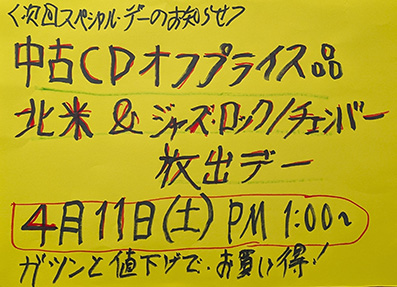 〈次回スペシャル・デーのお知らせ〉
中古CDオフプライス品
北米 & ジャズ・ロック/チェンバー
放出デー
4月11日(土) PM 1:00〜
ガツンと値下げで、お買い得!